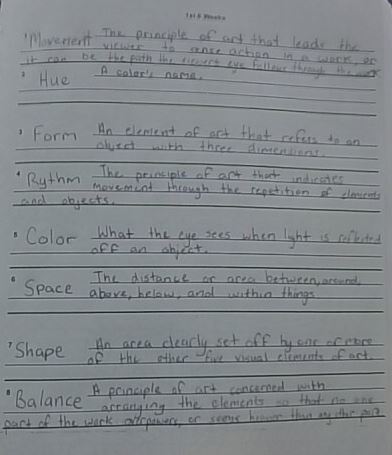 1st 6 Weeks
1 Movement The principle of art that leads the
viewer to sense action in a work, or
it can be the path the viewer's eye follows through the work
2 Hue A color's name.
3 Form An element of art that refers to an
object with three dimensions.
4 Rythm The principle of art that indicates
movement through the repetition of elements
and objects.
5 Color What the eye sees when light is reflected
off an object.
6 Space The distance or area between, around,
above, below, and within things
7 Shape An area clearly set off by one or more
of the other five visual elements of art.
8 Balance A principle of art concerned with
arranging the elements so that no one
part of the work overpowers, or seems heavier than any other part